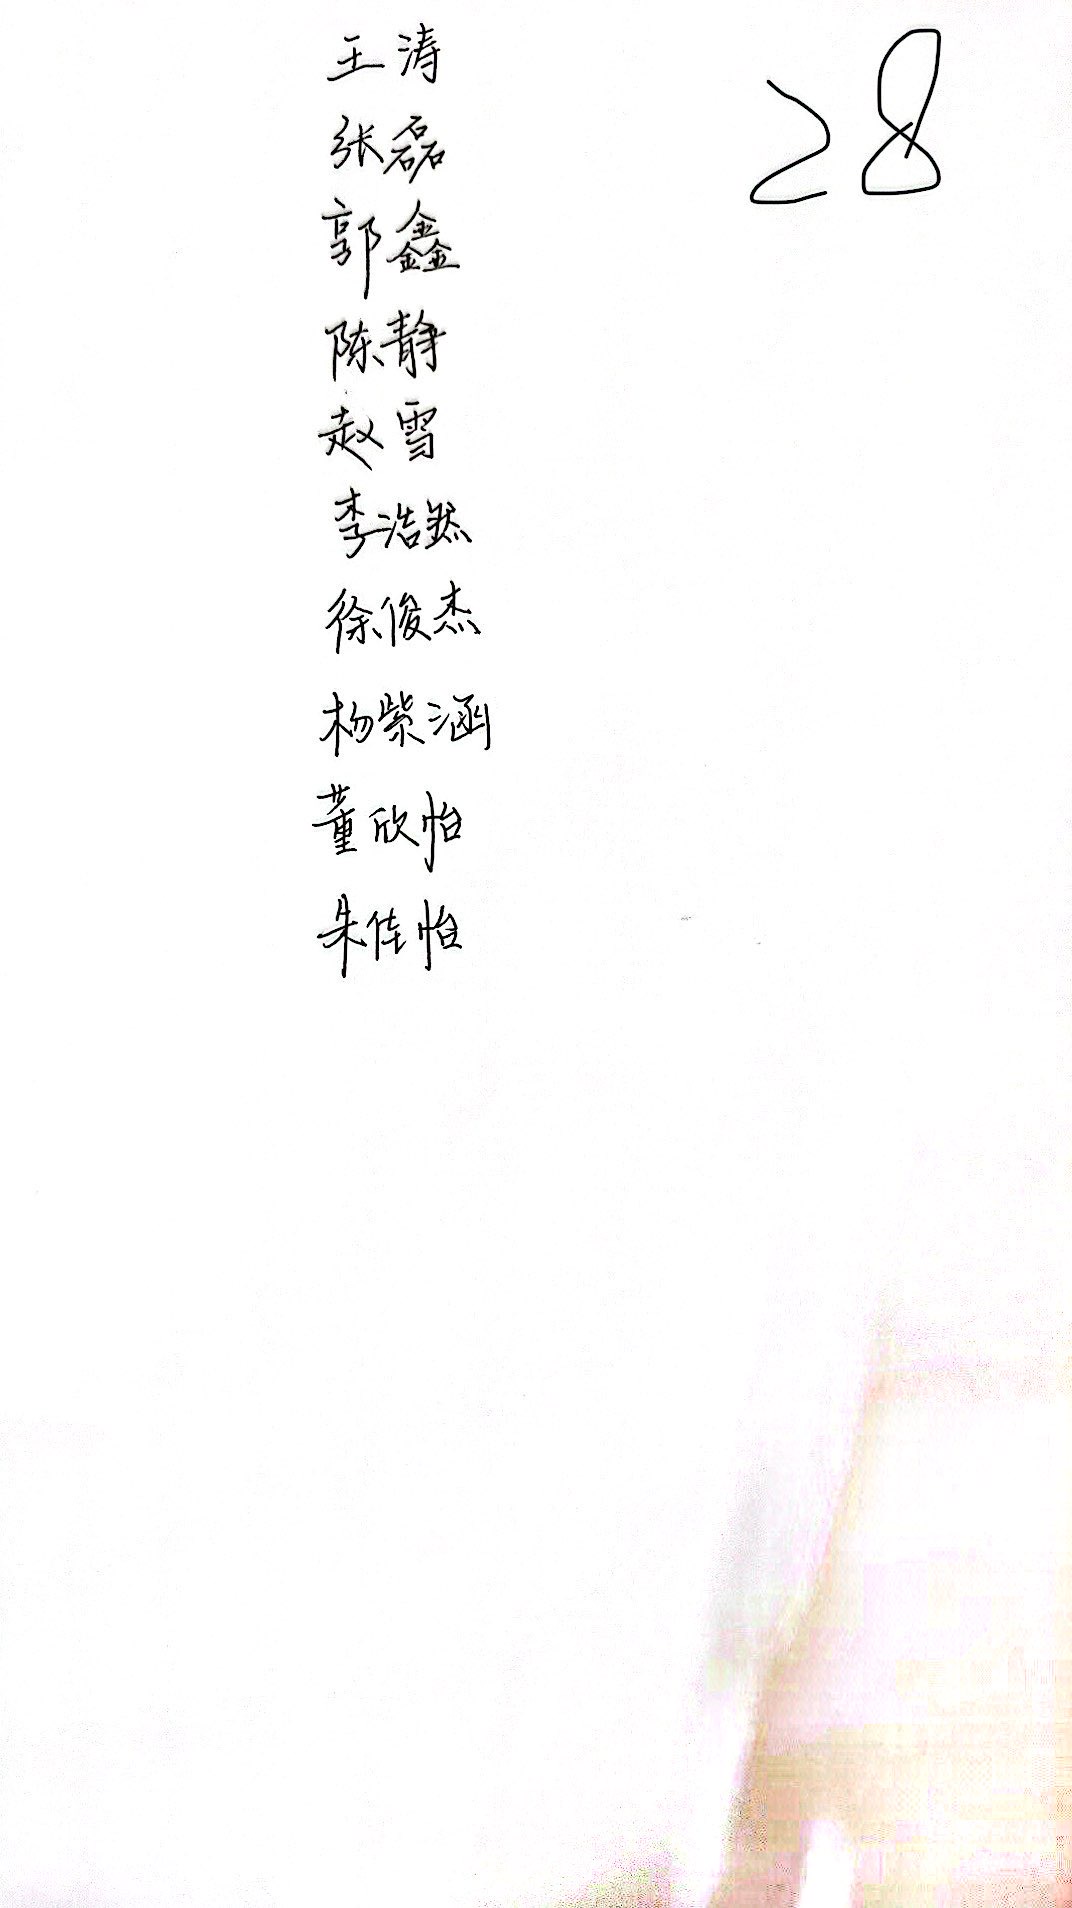 王涛
28
张磊
郭鑫
陈静
赵雪
李浩然
徐俊杰
杨紫涵
董欣怡
朱佳怡